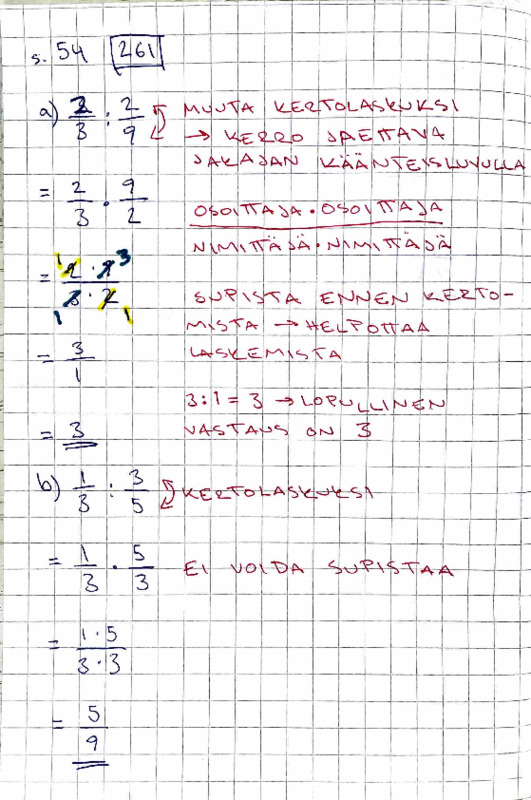 s. 54 261
a) 2/3 : 2/9 MUUTA KERTOLASKUKSI
→ KERRO JAETTAVA
JAKAJAN KÄÄNTEISLUVULLA
= 2/3 · 9/2
OSOITTAJA · OSOITTAJA
NIMITTÄJÄ · NIMITTÄJÄ
= 1 2 · 9 3 / 1 3 · 2 1
SUPISTA ENNEN KERTO-
MISTA → HELPOTTAA
LASKEMISTA
= 3/1
3:1 = 3 → LOPULLINEN
VASTAUS ON 3
= 3
b) 1/3 : 3/5 KERTOLASKUKSI
= 1/3 · 5/3 EI VOIDA SUPISTAA
= 1·5 / 3·3
= 5/9